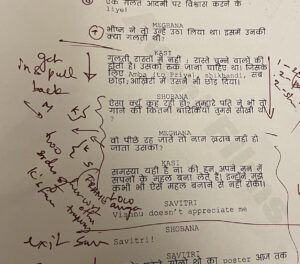 एक गलत आदमी पर विश्वास करने के
लिए?
MEGHANA
भीष्म ने तो उन्हें उठा लिया था। इसमें उनकी
क्या गलती थी?
KASI
गलती रास्तों में नहीं; रास्ते चुनने वालों की
होती है। उसको रुक जाना चाहिए था। जिसके
लिए Amba (to Priya), shikhandi, सब
छोड़ा; आखिरी में उसने भी छोड़ दिया।
SHOBANA
ऐसा क्यूँ कह रही हो? तुम्हारे पति ने भी तो
गाने की कितनी बारिकियाँ तुमसे सीखी थी
?
MEGHANA
वो पीछे रह जाते तो नाम खराब नहीं हो
जाता उसका?
KASI
समस्या यही है ना की हम अपने मन में
सपनों के महल बना लेते हैं। इन्होंने मुझे
कभी भी ऐसे महल बनाने से नहीं रोका।
SAVITRI
Vishnu doesn't appreciate me
SHOBANA
Savitri!
SAVITRI
poster आज तक
get
in & pull
back
two
sides of
exit Sav